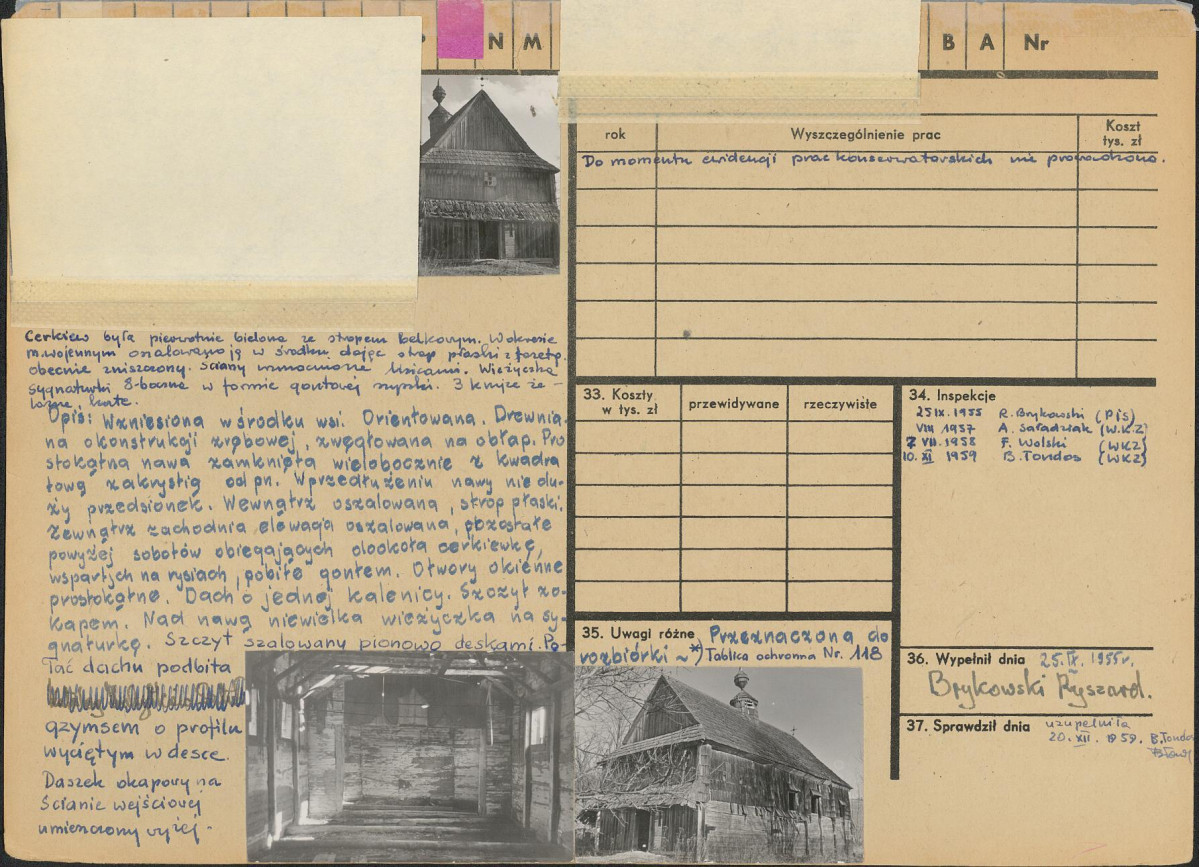 N M
B A Nr
rok Wyszczególnienie prac Koszt tys. zł
Do momentu ewidencji prac konserwatorskich nie prowadzono.
Cerkiew była pierwotnie bielona ze stropem belkowym. W okresie
m.wojennym oszalowano ją w środku dając strop płaski z fasetą,
obecnie zniszczony. Ściany wzmocnione lisicami. Wieżyczka
sygnaturki 8-boczna w formie gontowej 3 krzyże że-
lazne, kute.
Opis: Wzniesiona w środku wsi. Orientowana. Drewnia-
na o konstrukcji zrębowej, zwęgłowana na obłap. Pro
stokątna nawa zamknięta wielobocznie z kwadra
tową zakrystią od pn. W przedłużeniu nawy nie du-
ży przedsionek. Wewnątrz oszalowana, strop płaski.
Zewnątrz zachodnia elewacja oszalowana, pozostałe
powyżej sobotów obiegających dookoła cerkiewkę,
wspartych na rysiach, pobite gontem. Otwory okienne
prostokątne. Dach o jednej kalenicy. Szczyt z o-
kapem. Nad nawą niewielka wieżyczka na sy-
gnaturkę. Szczyt szalowany pionowo deskami. Po-
łać dachu podbita
gzymsem o profilu
wyciętym w desce.
Daszek okapowy na
ścianie wejściowej
umieszczony wyżej.
33. Koszty w tys. zł przewidywane rzeczywiste
34. Inspekcje
25 IX. 1955 R. Brykowski (PIS)
VIII 1957 A. Saładziak (W.K.Z)
7 VII. 1958 F. Wolski (WKZ)
10. XI 1959 B. Tondos (WKZ)
35. Uwagi różne Przeznaczona do
rozbiórki ~*) Tablica ochronna Nr. 118
36. Wypełnił dnia 25.IX. 1955r.
Brykowski Ryszard.
37. Sprawdził dnia uzupełniła
20. XII. 1959. B.Tondos